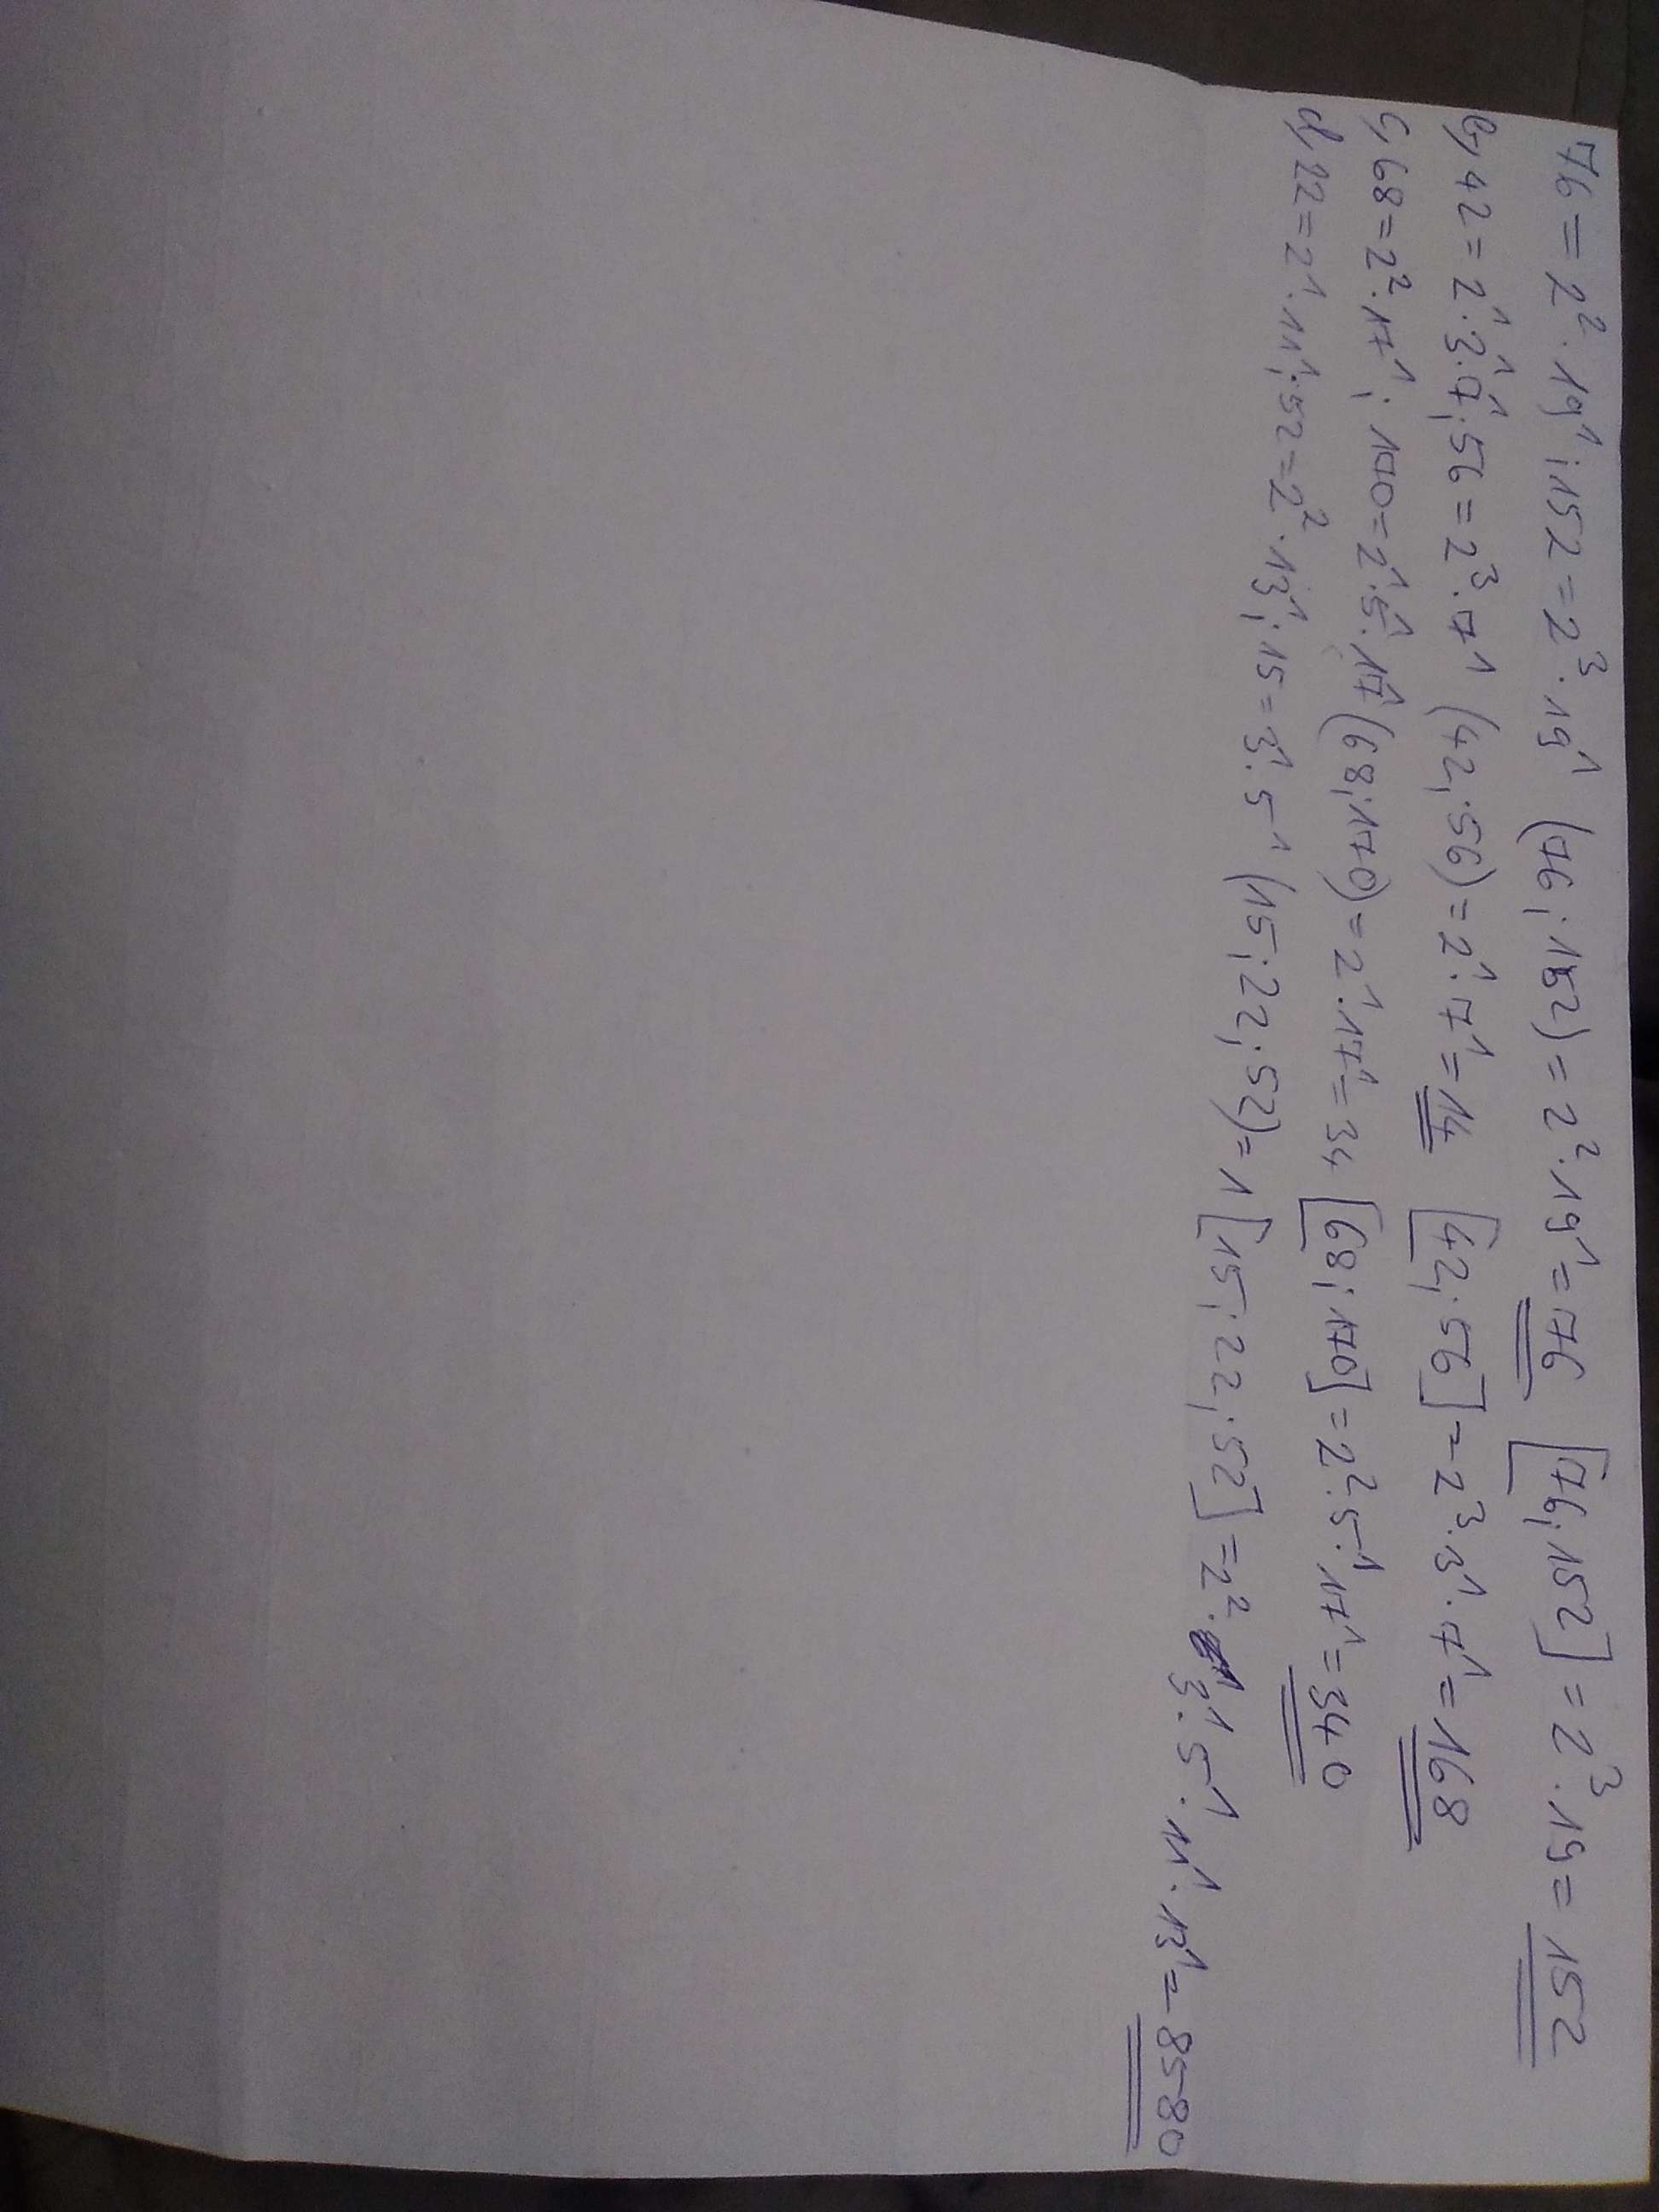 76 = 2² · 19¹ ; 152 = 2³ · 19¹ (76 ; 152) = 2² · 19¹ = 76 [76 ; 152] = 2³ · 19 = 152
b, 42 = 2¹ · 3¹ · 7¹ ; 56 = 2³ · 7¹ (42 ; 56) = 2¹ · 7¹ = 14 [42 ; 56] = 2³ · 3¹ · 7¹ = 168
c, 68 = 2² · 17¹ ; 170 = 2¹ · 5¹ · 17¹ (68 ; 170) = 2¹ · 17¹ = 34 [68 ; 170] = 2² · 5¹ · 17¹ = 340
d, 22 = 2¹ · 11¹ ; 52 = 2² · 13¹ ; 15 = 3¹ · 5¹ (15 ; 22 ; 52) = 1 [15 ; 22 ; 52] = 2² · 3¹ · 5¹ · 11¹ · 13¹ = 8580